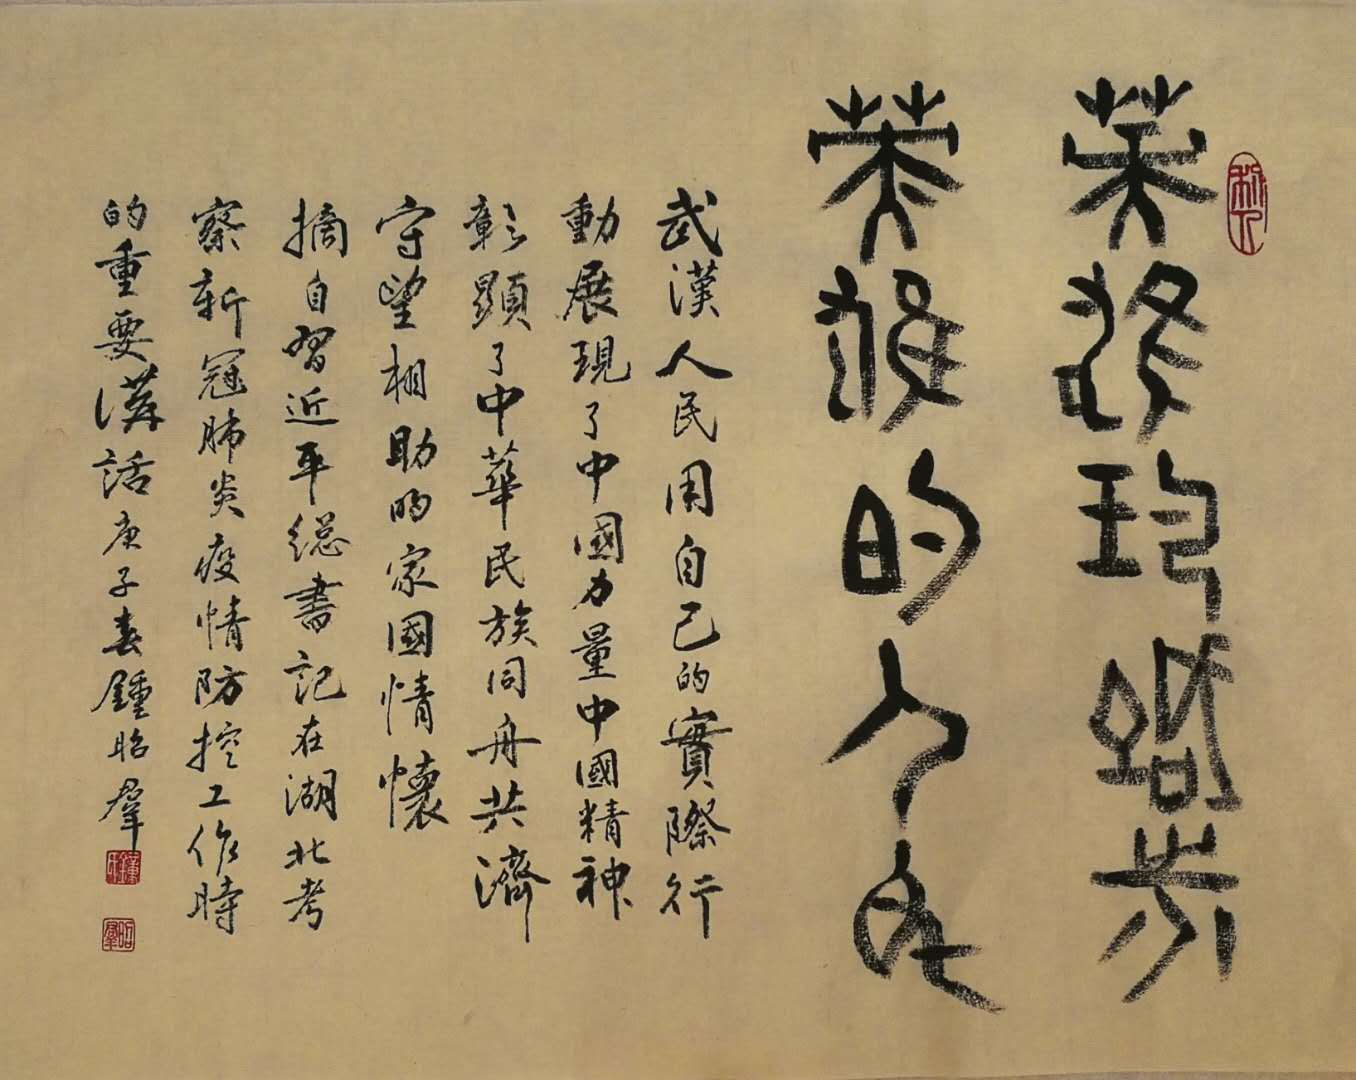 英雄的城市
英雄的人民
武漢人民用自己的實際行
動展現了中國力量中國精神
彰顯了中華民族同舟共濟
守望相助的家國情懷
摘自習近平總書記在湖北考
察新冠肺炎疫情防控工作時
的重要講話庚子春鍾昭羣
昭羣